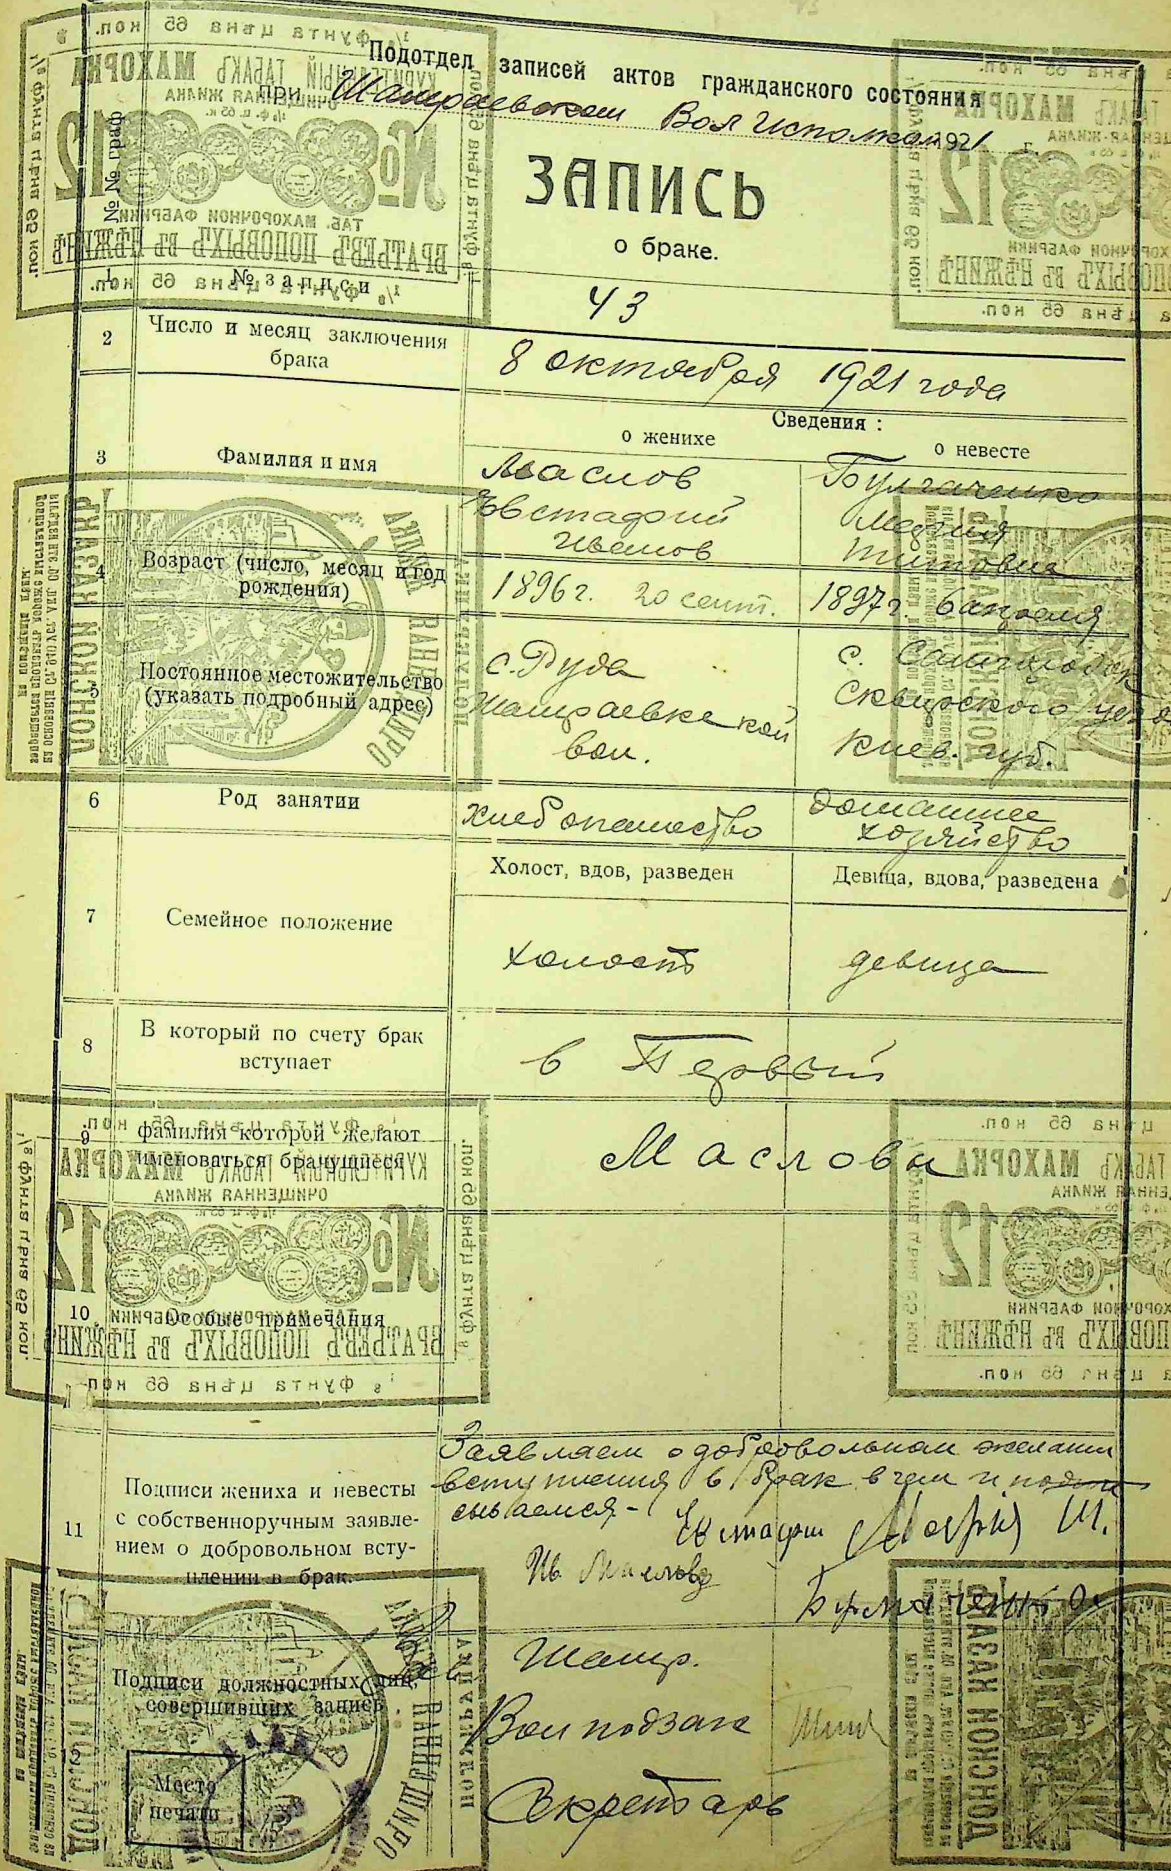 Подотдел записей актов гражданского состояния
при Шамраевском Вол Исполком 1921 г.
ЗАПИСЬ
о браке.
№ № граф
1 № записи 43
2 Число и месяц заключения брака
8 октября 1921 года
Сведения:
о женихе
о невесте
3 Фамилия и имя
Маслов
Евстафий
Иванов
Булгаченко
Мария
Титовна
4 Возраст (число, месяц и год
рождения)
1896 г. 20 сент.
1897 г. 6 апреля
5 Постоянное местожительство
(указать подробный адрес)
с. Руда
Шамраевкской
вол.
с.
Сквирского уезда
Киев. губ.
6 Род занятии
хлебопашество
домашнее
хозяйство
7 Семейное положение
Холост, вдов, разведен
Девица, вдова, разведена
холост
девица
8 В который по счету брак
вступает
в Первый
9 фамилия которой желают
именоваться брачущиеся
Масловы
10 Особые примечания
11 Подписи жениха и невесты
с собственноручным заявле-
нием о добровольном всту-
плении в брак.
Заявляем о добровольном желании
вступления в брак в чем и подпи
сываемся-
Евстафии
Мария
12 Подписи должностных лиц,
совершивших запись
Место
печати
Шамр.
Вол подзаг
Секретарь
КУРИТЕЛЬНЫЙ ТАБАКЪ МАХОРКА
ОЧИЩЕННАЯ ЖИЛКА
№ 12
ТАБ. МАХОРОЧНОЙ ФАБРИКИ
БРАТЬЕВЪ ПОПОВЫХЪ ВЪ НѢЖИНѢ
⅛ фунта цѣна 65 коп.
ДОНСКОЙ КАЗАКЪ